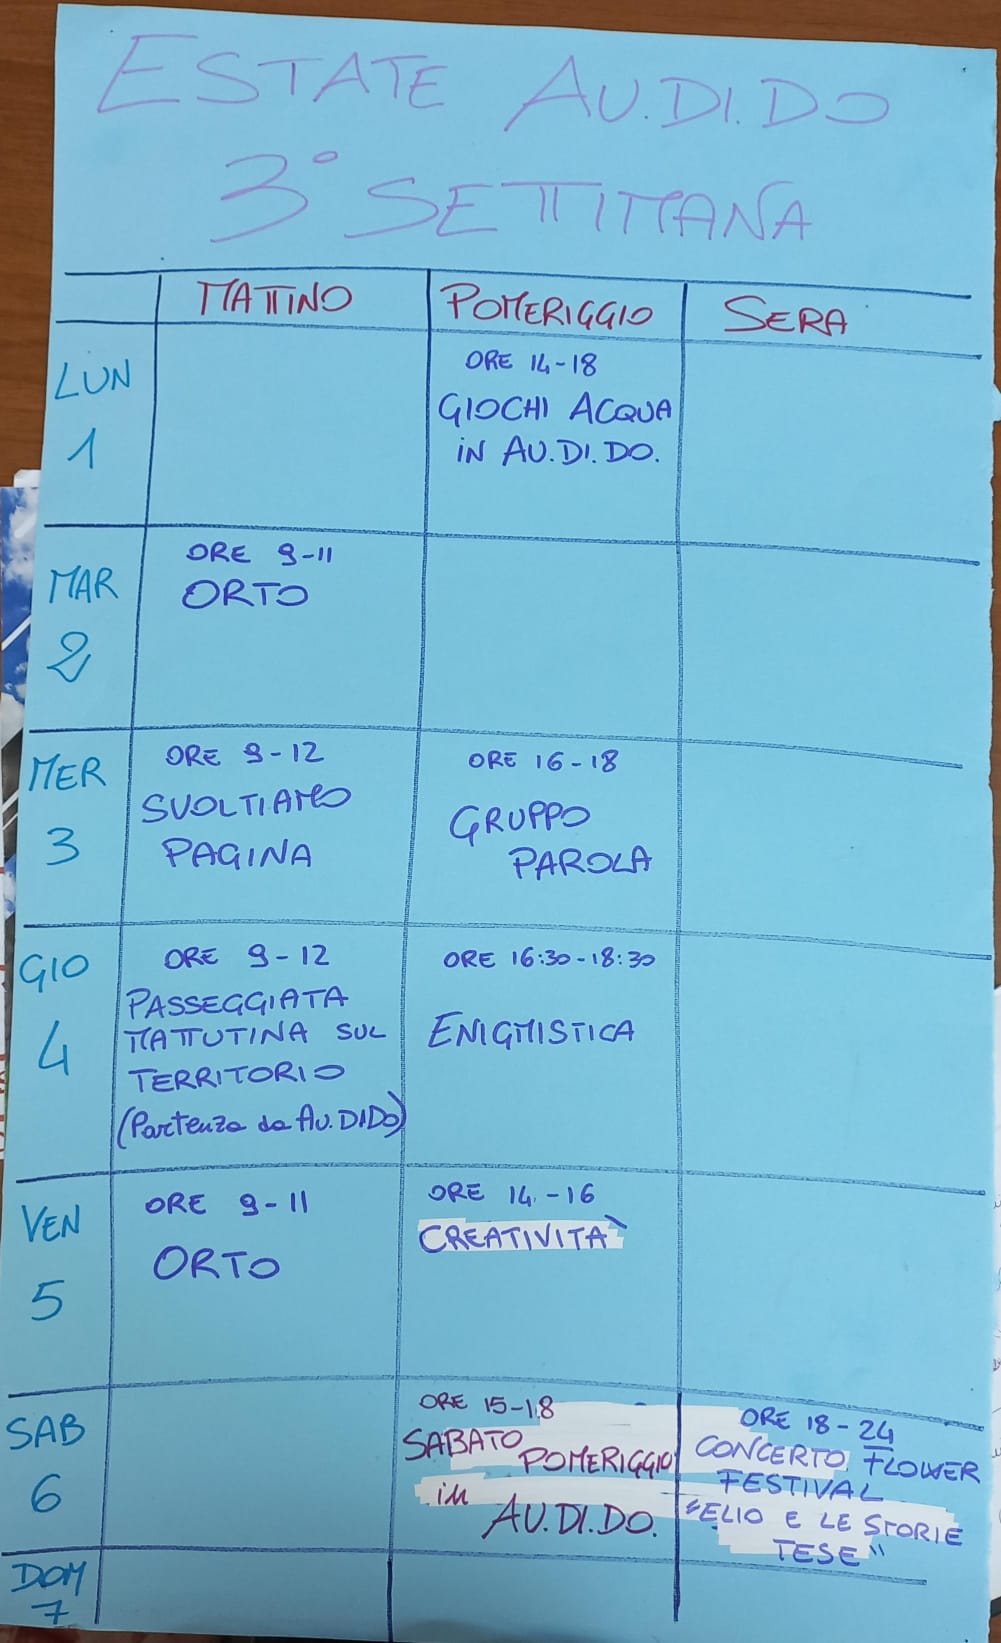 ESTATE AU.DI.DO
3° SETTIMANA
MATTINO POMERIGGIO SERA
LUN
1
ORE 14-18
GIOCHI ACQUA
iN AU.DI.DO.
MAR
2
ORE 9-11
ORTO
MER
3
ORE 9-12
SVOLTIAMO
PAGINA
ORE 16-18
GRUPPO
PAROLA
GIO
4
ORE 9-12
PASSEGGIATA
MATTUTINA SUL
TERRITORIO
(Partenza da AU.DIDO)
ORE 16:30-18:30
ENIGMISTICA
VEN
5
ORE 9-11
ORTO
ORE 14.-16
CREATIVITÀ
SAB
6
ORE 15-18
SABATO POMERIGGIO
in
AU.DI.DO.
ORE 18-24
CONCERTO FLOWER
FESTIVAL
"ELIO E LE STORIE
TESE"
DOM
7